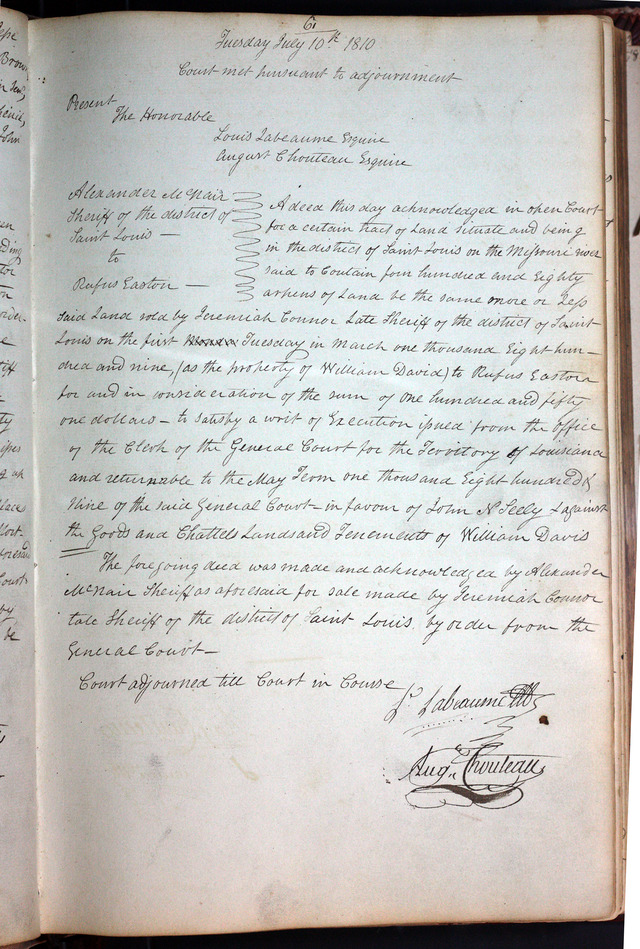 6
Tuesday July 10th 1810
Court met pursuant to adjournment
Present
The Honorable
Louis Labeaume Esquire
August Chouteau Esquire
Alexander McNair
Sheriff of the district of
Saint Louis —
to
Rufus Easton —
A deed this day acknowledged in open Court
for a certain tract of Land situate and being
in the district of Saint Louis on the Missouri river
said to Contain four hundred and Eighty
arpens of Land be the same more or less
Said Land sold by Jeremiah Connor Late Sheriff of the district of Saint
Louis on the first Monday Tuesday in March one thousand Eight hun-
dred and nine, (as the property of William David) to Rufus Easton
for and in consideration of the sum of one hundred and fifty
one dollars — to satisfy a writ of Execution issued from the office
of the Clerk of the General Court for the Territory of Louisiana
and returnable to the May Term one thousand Eight hundred &
Nine of the said General Court — in favour of John N Seely against
the Goods and Chattels Lands and Tenements of William Davis
The foregoing deed was made and acknowledged by Alexander
McNair Sheriff as aforesaid for sale made by Jeremiah Connor
late Sheriff of the district of Saint Louis. by order from the
General Court —
Court adjourned till Court in Course
Ls. Labeaume
Augte Chouteau